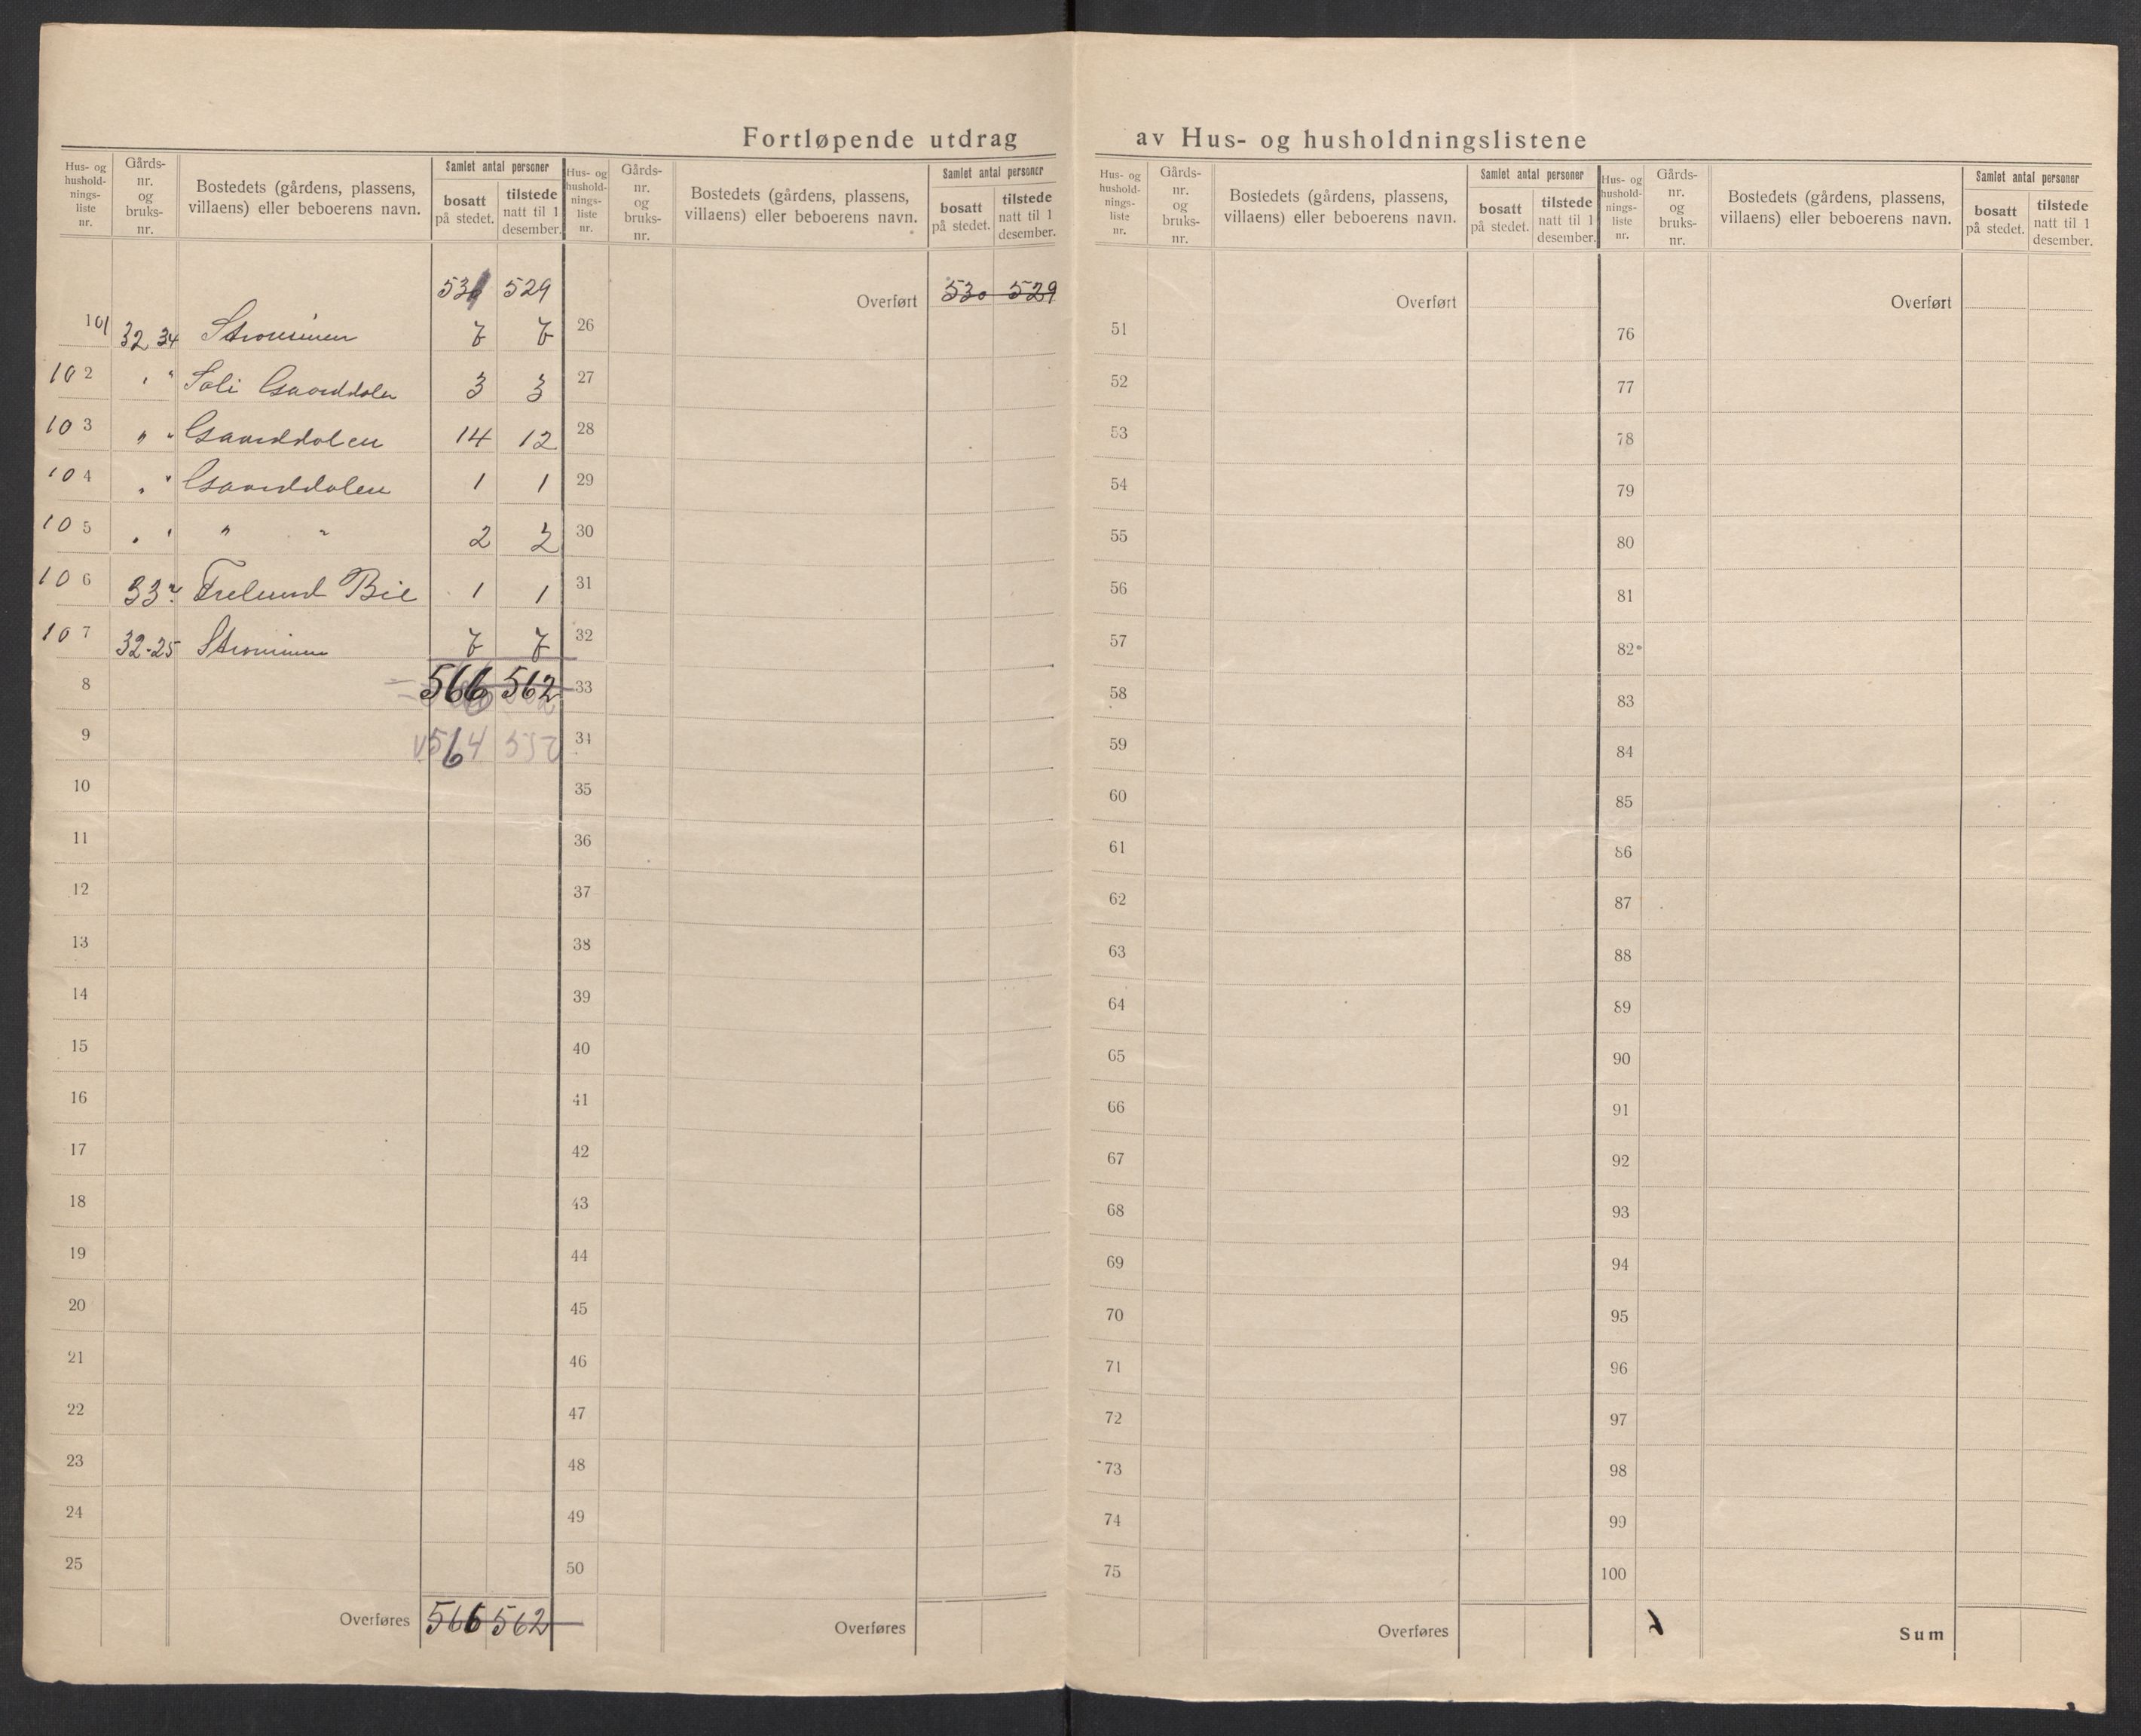 Fortløpende utdrag av Hus- og husholdningslistene
Hus- og husholdnings-liste nr. Gårds-nr. og bruks-nr. Bostedets (gårdens, plassens, villaens) eller beboerens navn. Samlet antal personer bosatt på stedet. tilstede natt til 1 desember.
529
101 32 34 Strømmen 7 7
102 " " Soli Gaarddalen 3 3
103 " " Gaarddalen 14 12
104 " " Gaarddalen 1 1
105 " " " " 2 2
106 33 Frelund Bie 1 1
107 32-25 Strømmen 7 7
8 566 562
9 564
10
11
12
13
14
15
16
17
18
19
20
21
22
23
24
25
Overføres 566 562
Hus- og husholdnings-liste nr. Gårds-nr. og bruks-nr. Bostedets (gårdens, plassens, villaens) eller beboerens navn. Samlet antal personer bosatt på stedet. tilstede natt til 1 desember.
Overført 530 529
26
27
28
29
30
31
32
33
34
35
36
37
38
39
40
41
42
43
44
45
46
47
48
49
50
Overføres
Hus- og husholdnings-liste nr. Gårds-nr. og bruks-nr. Bostedets (gårdens, plassens, villaens) eller beboerens navn. Samlet antal personer bosatt på stedet. tilstede natt til 1 desember.
Overført
51
52
53
54
55
56
57
58
59
60
61
62
63
64
65
66
67
68
69
70
71
72
73
74
75
Overføres
Hus- og husholdnings-liste nr. Gårds-nr. og bruks-nr. Bostedets (gårdens, plassens, villaens) eller beboerens navn. Samlet antal personer bosatt på stedet. tilstede natt til 1 desember.
Overført
76
77
78
79
80
81
82
83
84
85
86
87
88
89
90
91
92
93
94
95
96
97
98
99
100
Sum